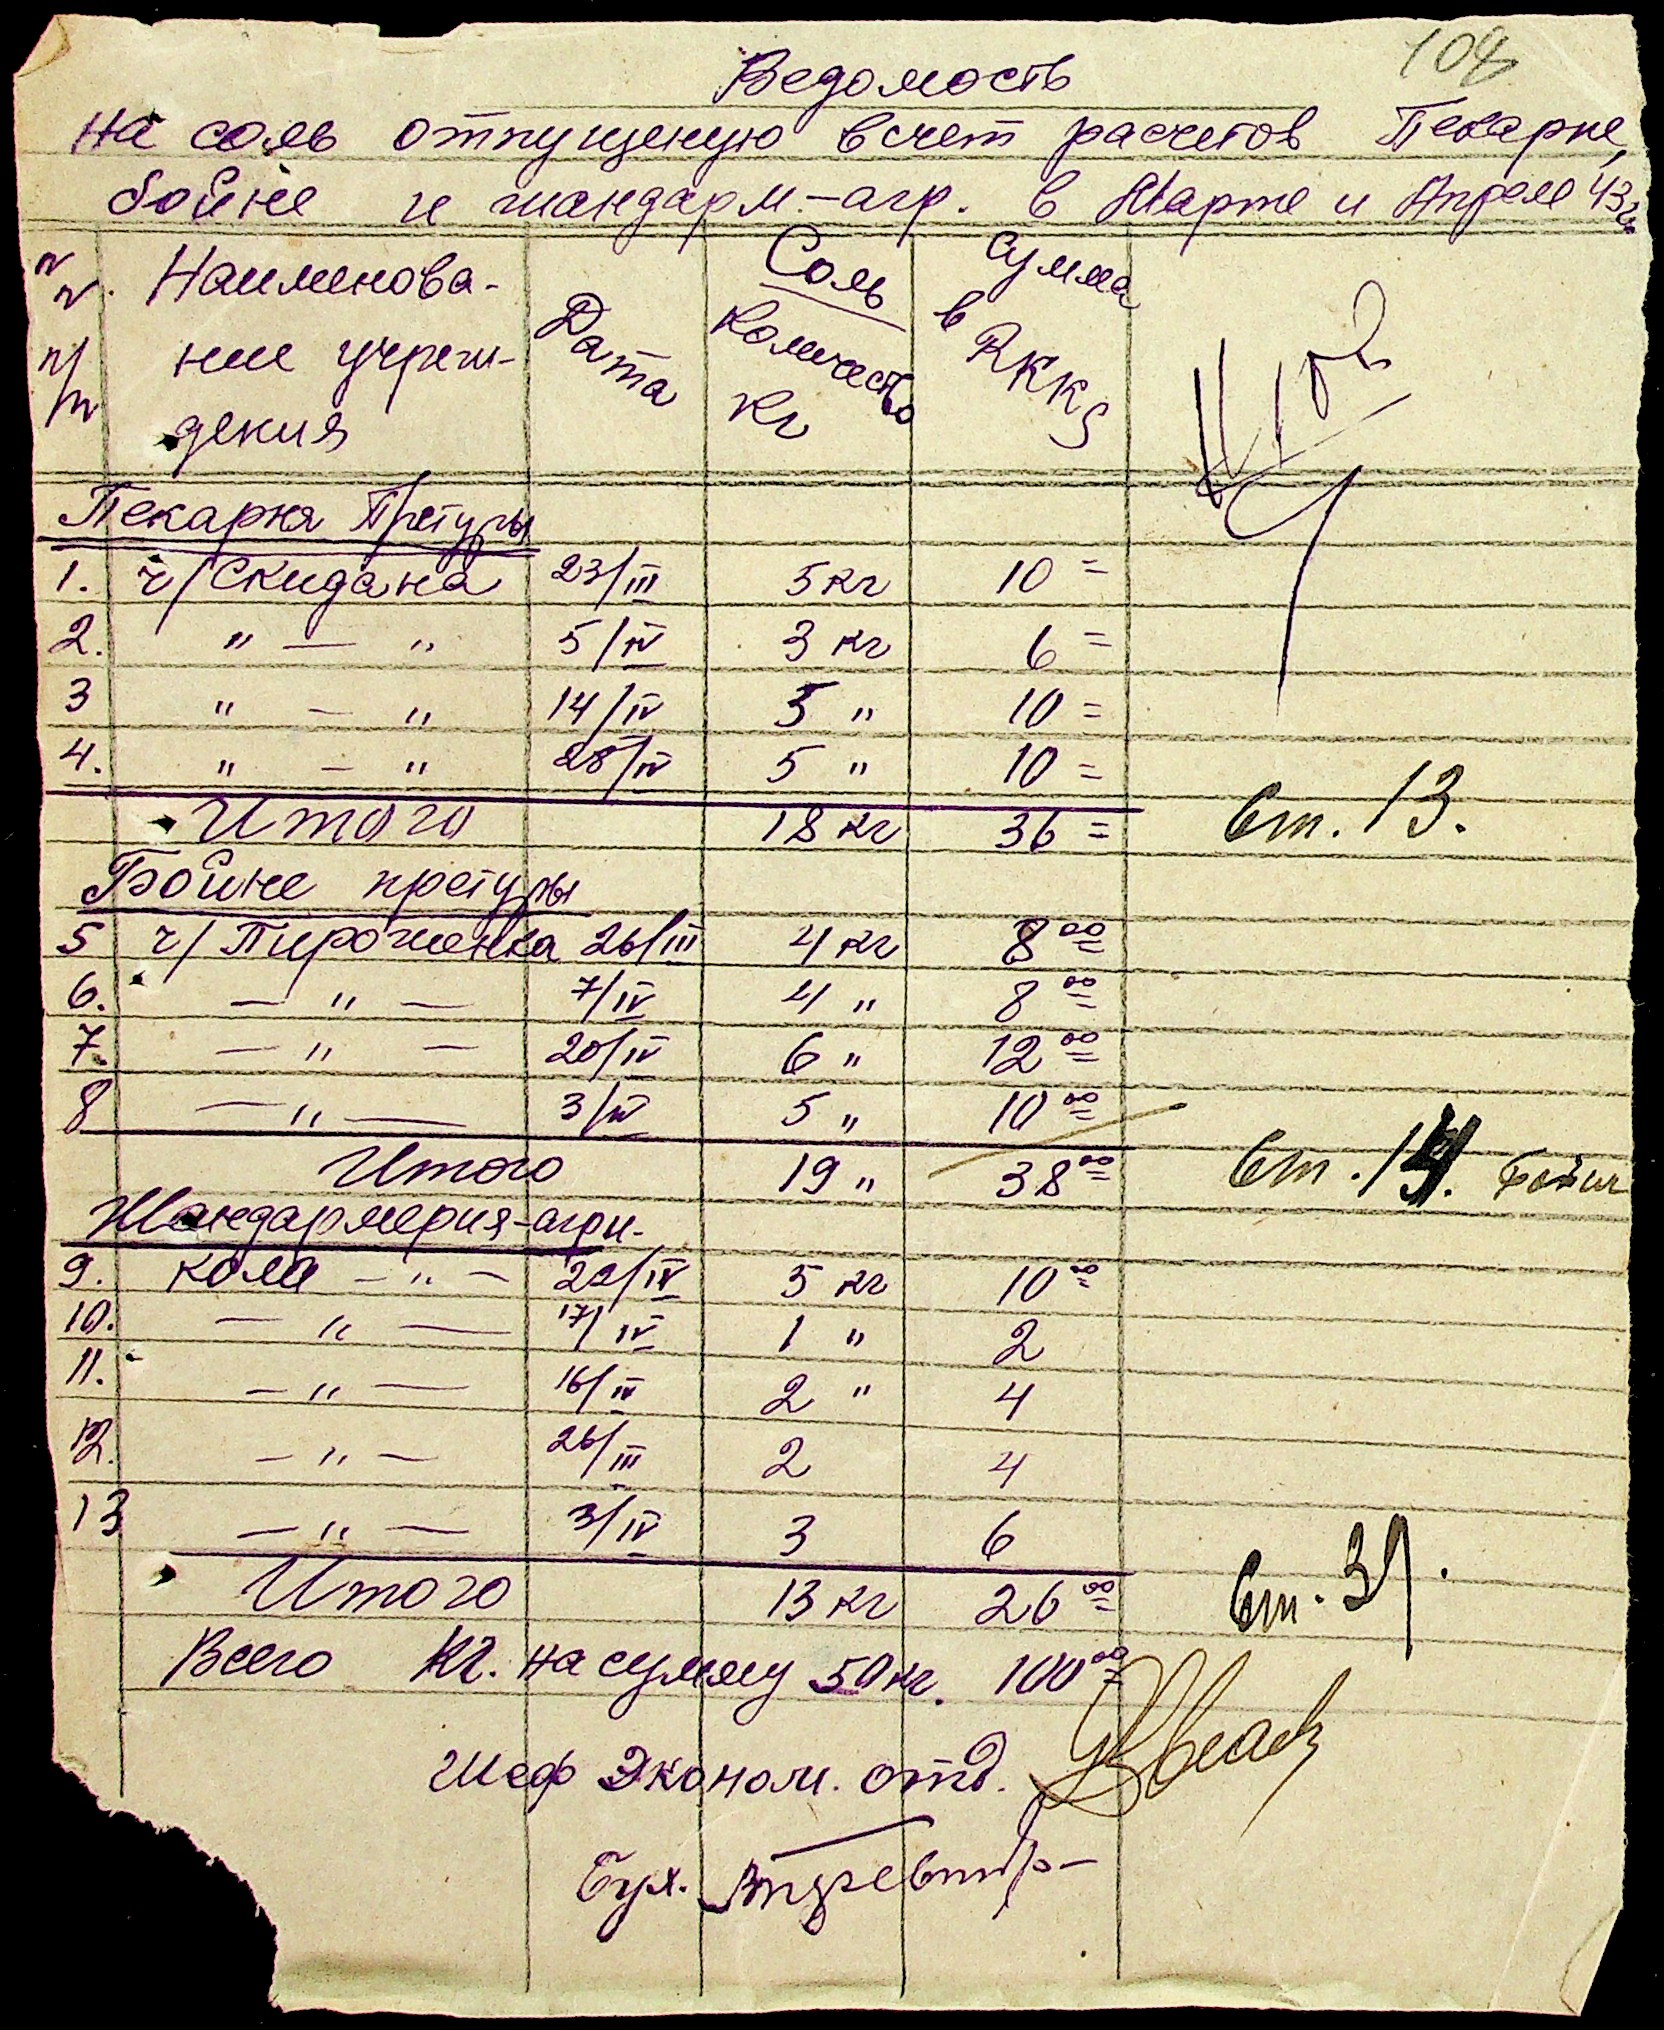 108
Ведомость
на соль отпущеную в счет расчетов Пекарне,
бойне и жандарм.-агр. в Марте и Апреле 43 г.
№№ п/п Наименова-ние учреж-дения Дата Соль Количество Кг Сумма в RKKS
Пекарня Претуры
1. ч/Скидана 23/III 5 кг 10 =
2. " — " 5/IV 3 кг 6 =
3 " — " 14/IV 5 " 10 =
4. " — " 28/IV 5 " 10 =
Итого 18 кг 36 = Ст. 13.
Бойне претуры
5 ч/Пироженка 26/III 4 кг 8 00
6. — " — 7/IV 4 " 8 00
7. — " — 20/IV 6 " 12 00
8 — " — 3/IV 5 " 10 00
Итого 19 " 38 00 Ст. 14.
Жандармерия-агри-
9. кола — " — 20/IV 5 кг 10 00
10. — " — 17/IV 1 " 2
11. — " — 16/IV 2 " 4
12. — " — 26/III 2 4
13 — " — 3/IV 3 6
Итого 13 кг 26 00 Ст. 39.
Всего Кг. на сумму 50 кг. 100 00
Шеф Эконом. отд.
Бух.